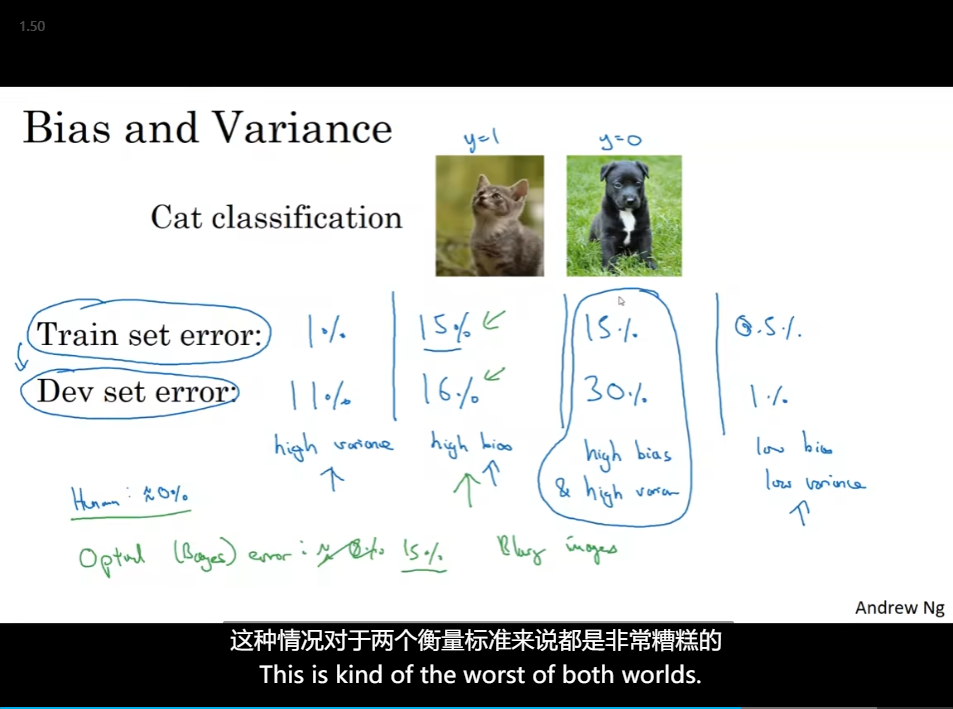 1.50
Bias and Variance
y=1 y=0
Cat classification
Train set error: 1% 15% 15% 0.5%
Dev set error: 11% 16% 30% 1%
high variance high bias high bias low bias
& high low variance
Human: ≈0%
(Bayes) error: ≈0% 15% Blurry images
Andrew Ng
这种情况对于两个衡量标准来说都是非常糟糕的
This is kind of the worst of both worlds.